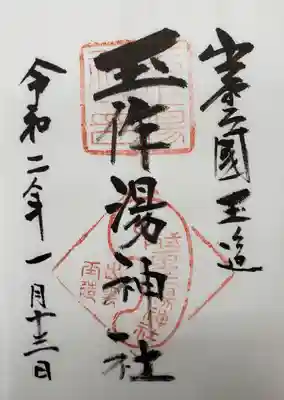 出雲國玉造
玉作湯神社
令和二年一月十三日